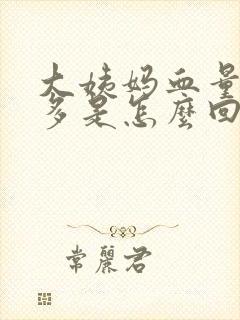 大姨妈血量
多是怎麼回
常麗君